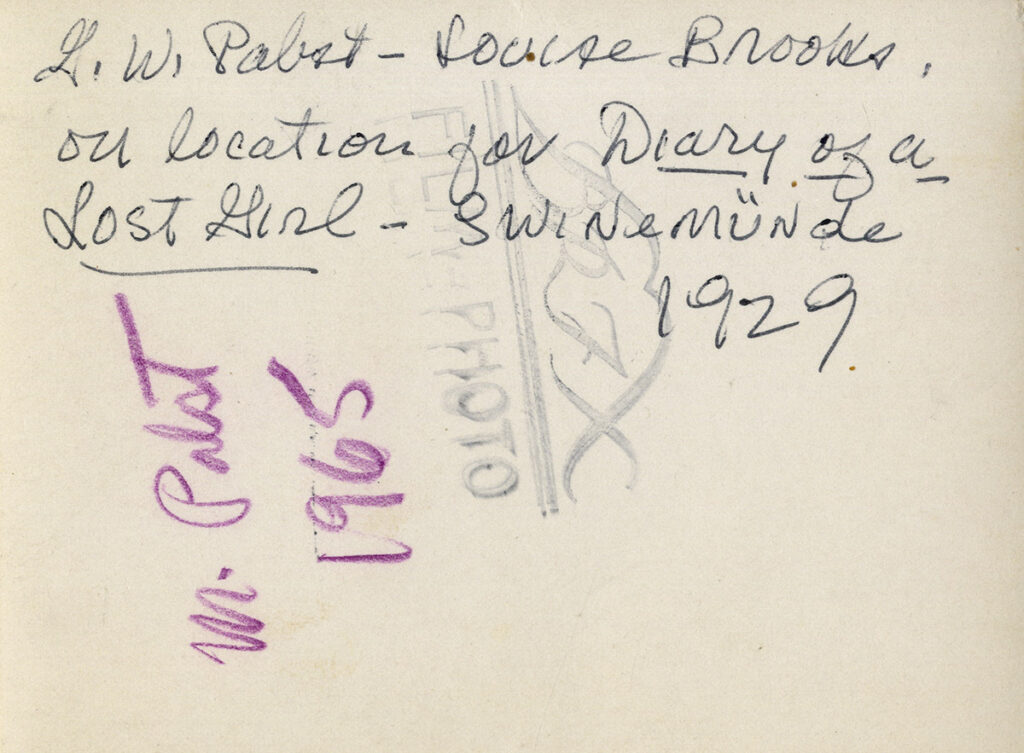 G. W. Pabst – Louise Brooks.
on location for Diary of a
Lost Girl – SWINEMÜNde
1929
M. Pabst
1965
FILM-PHOTO